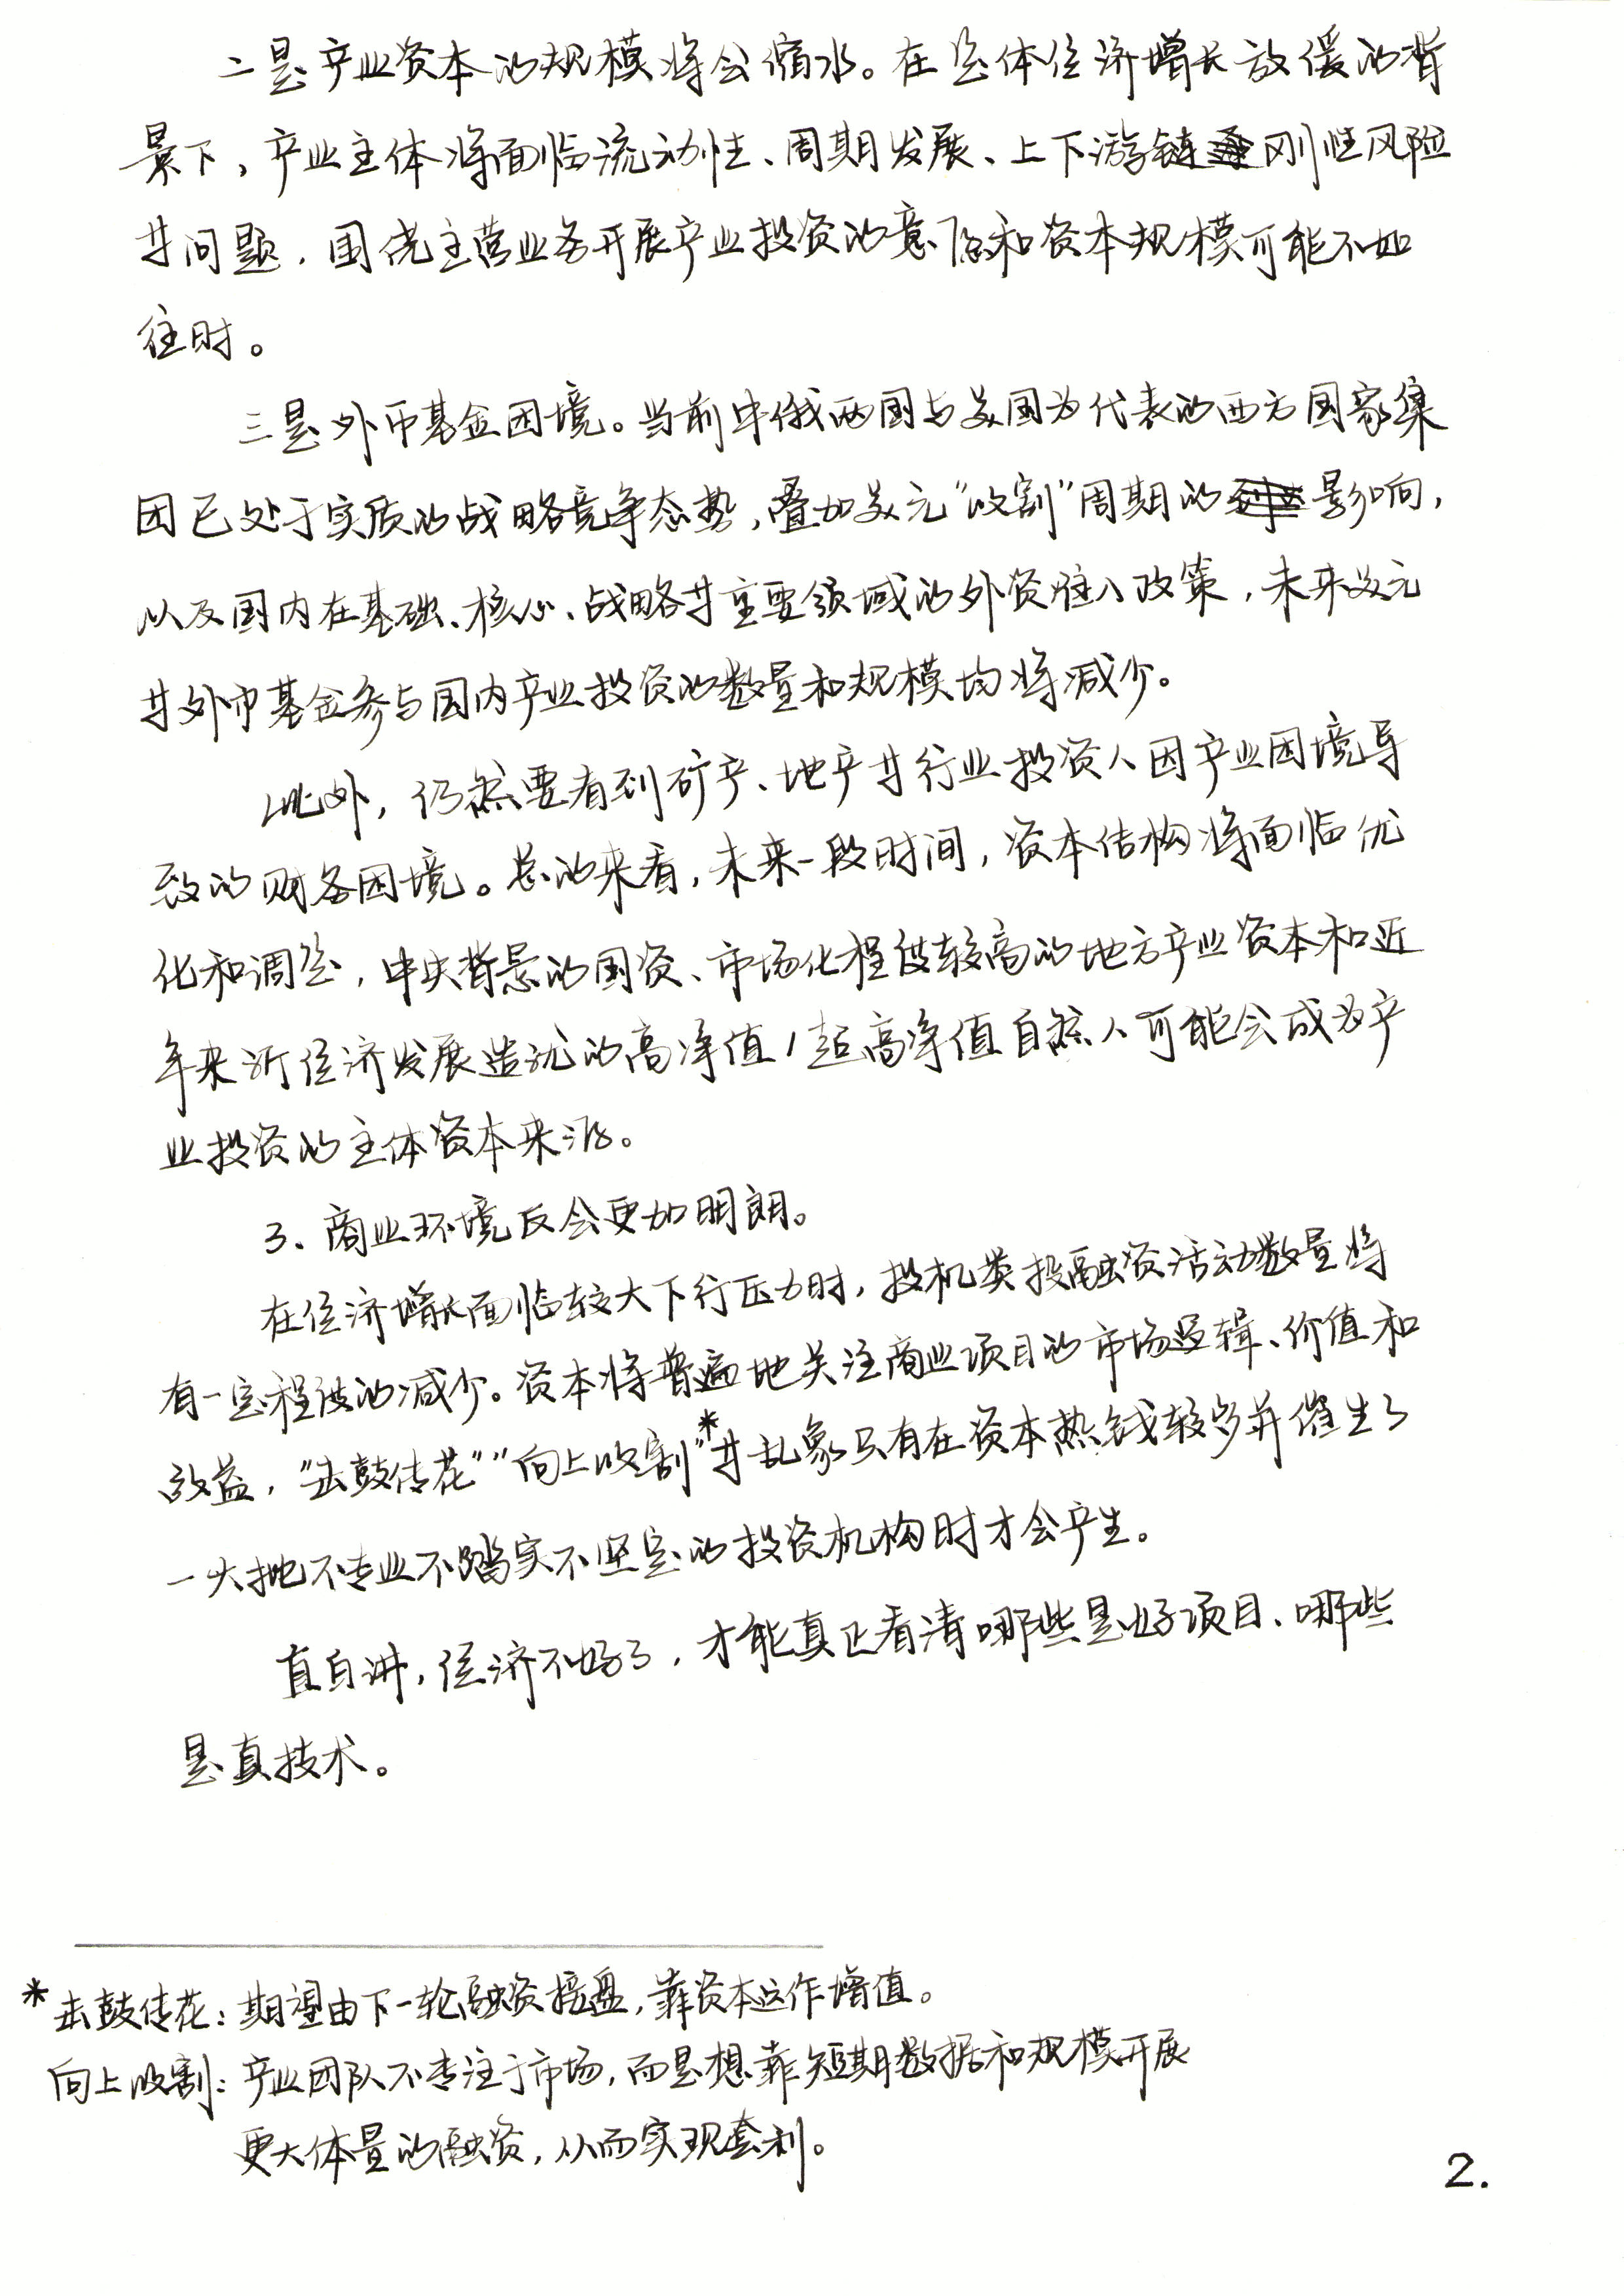 二是产业资本的规模将会缩水。在总体经济增长放缓的背
景下，产业主体将面临流动性、周期发展、上下游链刚性风险
等问题，围绕主营业务开展产业投资的意愿和资本规模可能不如
往时。
三是外币基金困境。当前中俄两国与美国为代表的西方国家集
团已处于实质的战略竞争态势，叠加美元“收割”周期的影响，
以及国内在基础、核心、战略等重要领域的外资准入政策，未来美元
等外币基金参与国内产业投资的数量和规模均将减少。
此外，仍然要看到矿产、地产等行业投资人因产业困境导
致的财务困境。总的来看，未来一段时间，资本结构将面临优
化和调整，中央背景的国资、市场化程度较高的地方产业资本和近
年来新经济发展造就的高净值/超高净值自然人可能会成为产
业投资的主体资本来源。
3、商业环境反会更加明朗。
在经济增长面临较大下行压力时，投机类投融资活动数量将
有一定程度的减少。资本将普遍地关注商业项目的市场逻辑、价值和
效益，“击鼓传花”“向上收割”*等乱象只有在资本热钱较多并催生了
一大批不专业不踏实不坚定的投资机构时才会产生。
直白讲，经济不好了，才能真正看清哪些是好项目、哪些
是真技术。
*击鼓传花：期望由下一轮融资接盘，靠资本运作增值。
向上收割：产业团队不专注于市场，而是想靠短期数据和规模开展
更大体量的融资，从而实现套利。
2.